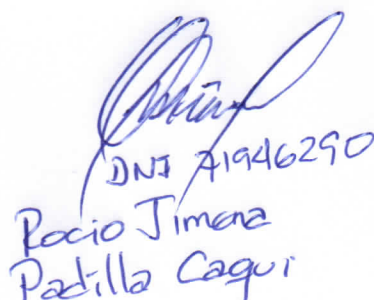 DNI 71946290
Rocio Jimena
Padilla Caqui